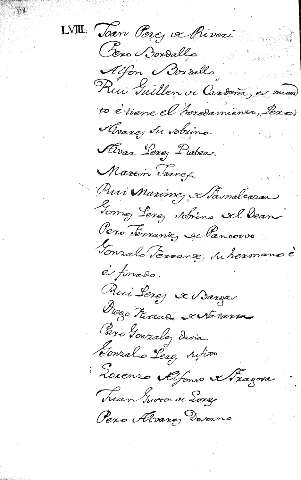 LVIII. Joan Perez de Riveri
Pero Bordallo
Alfon Bordallo
Rui Guillen de Cardeña, es muer
to é tiene el heredamiento, Perez
Alvarez su sobrino.
Alvar Perez
Martin
Rui Martinez de
Gomez Perez sobrino del Dean
Pero Ferrantez de Pancorvo
Gonzalo Ferranz, su hermano é
es finado.
Rui Perez de Barga
Diego de Navarra
Pero Gonzalez
Gonzalo Perez su fijo
Lorenzo Alfonso de Aragon
Juan Garcia de
Pero Alvarez